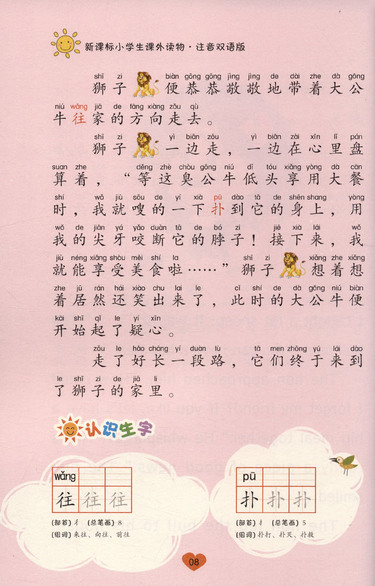 新课标小学生课外读物·注音双语版
shī zi biàn gōng gōng jìng jìng de dài zhe dà gōng
狮子便恭恭敬敬地带着大公
niú wǎng jiā de fāng xiàng zǒu qù
牛往家的方向走去。
shī zi yì biān zǒu yì biān zài xīn lǐ pán
狮子一边走，一边在心里盘
suan zhe děng zhè chòu gōng niú dī tóu xiǎng yòng dà cān
算着，“等这臭公牛低头享用大餐
shí wǒ jiù sōu de yí xià pū dào tā de shēn shang yòng
时，我就嗖的一下扑到它的身上，用
wǒ de jiān yá yǎo duàn tā de bó zi jiē xià lái wǒ
我的尖牙咬断它的脖子！接下来，我
jiù néng xiǎng shòu měi shí la shī zi xiǎng zhe xiǎng
就能享受美食啦……”狮子想着想
zhe jū rán hái xiào chū lai le cǐ shí de dà gōng niú biàn
着居然还笑出来了，此时的大公牛便
kāi shǐ qǐ le yí xīn
开始起了疑心。
zǒu le hǎo cháng yí duàn lù tā men zhōng yú lái dào
走了好长一段路，它们终于来到
le shī zi de jiā li
了狮子的家里。
认识生字
wǎng
往往往
(部首) 彳 (总笔画) 8
(组词) 来往、向往、前往
pū
扑扑扑
(部首) 扌 (总笔画) 5
(组词) 扑打、扑灭、扑救
08